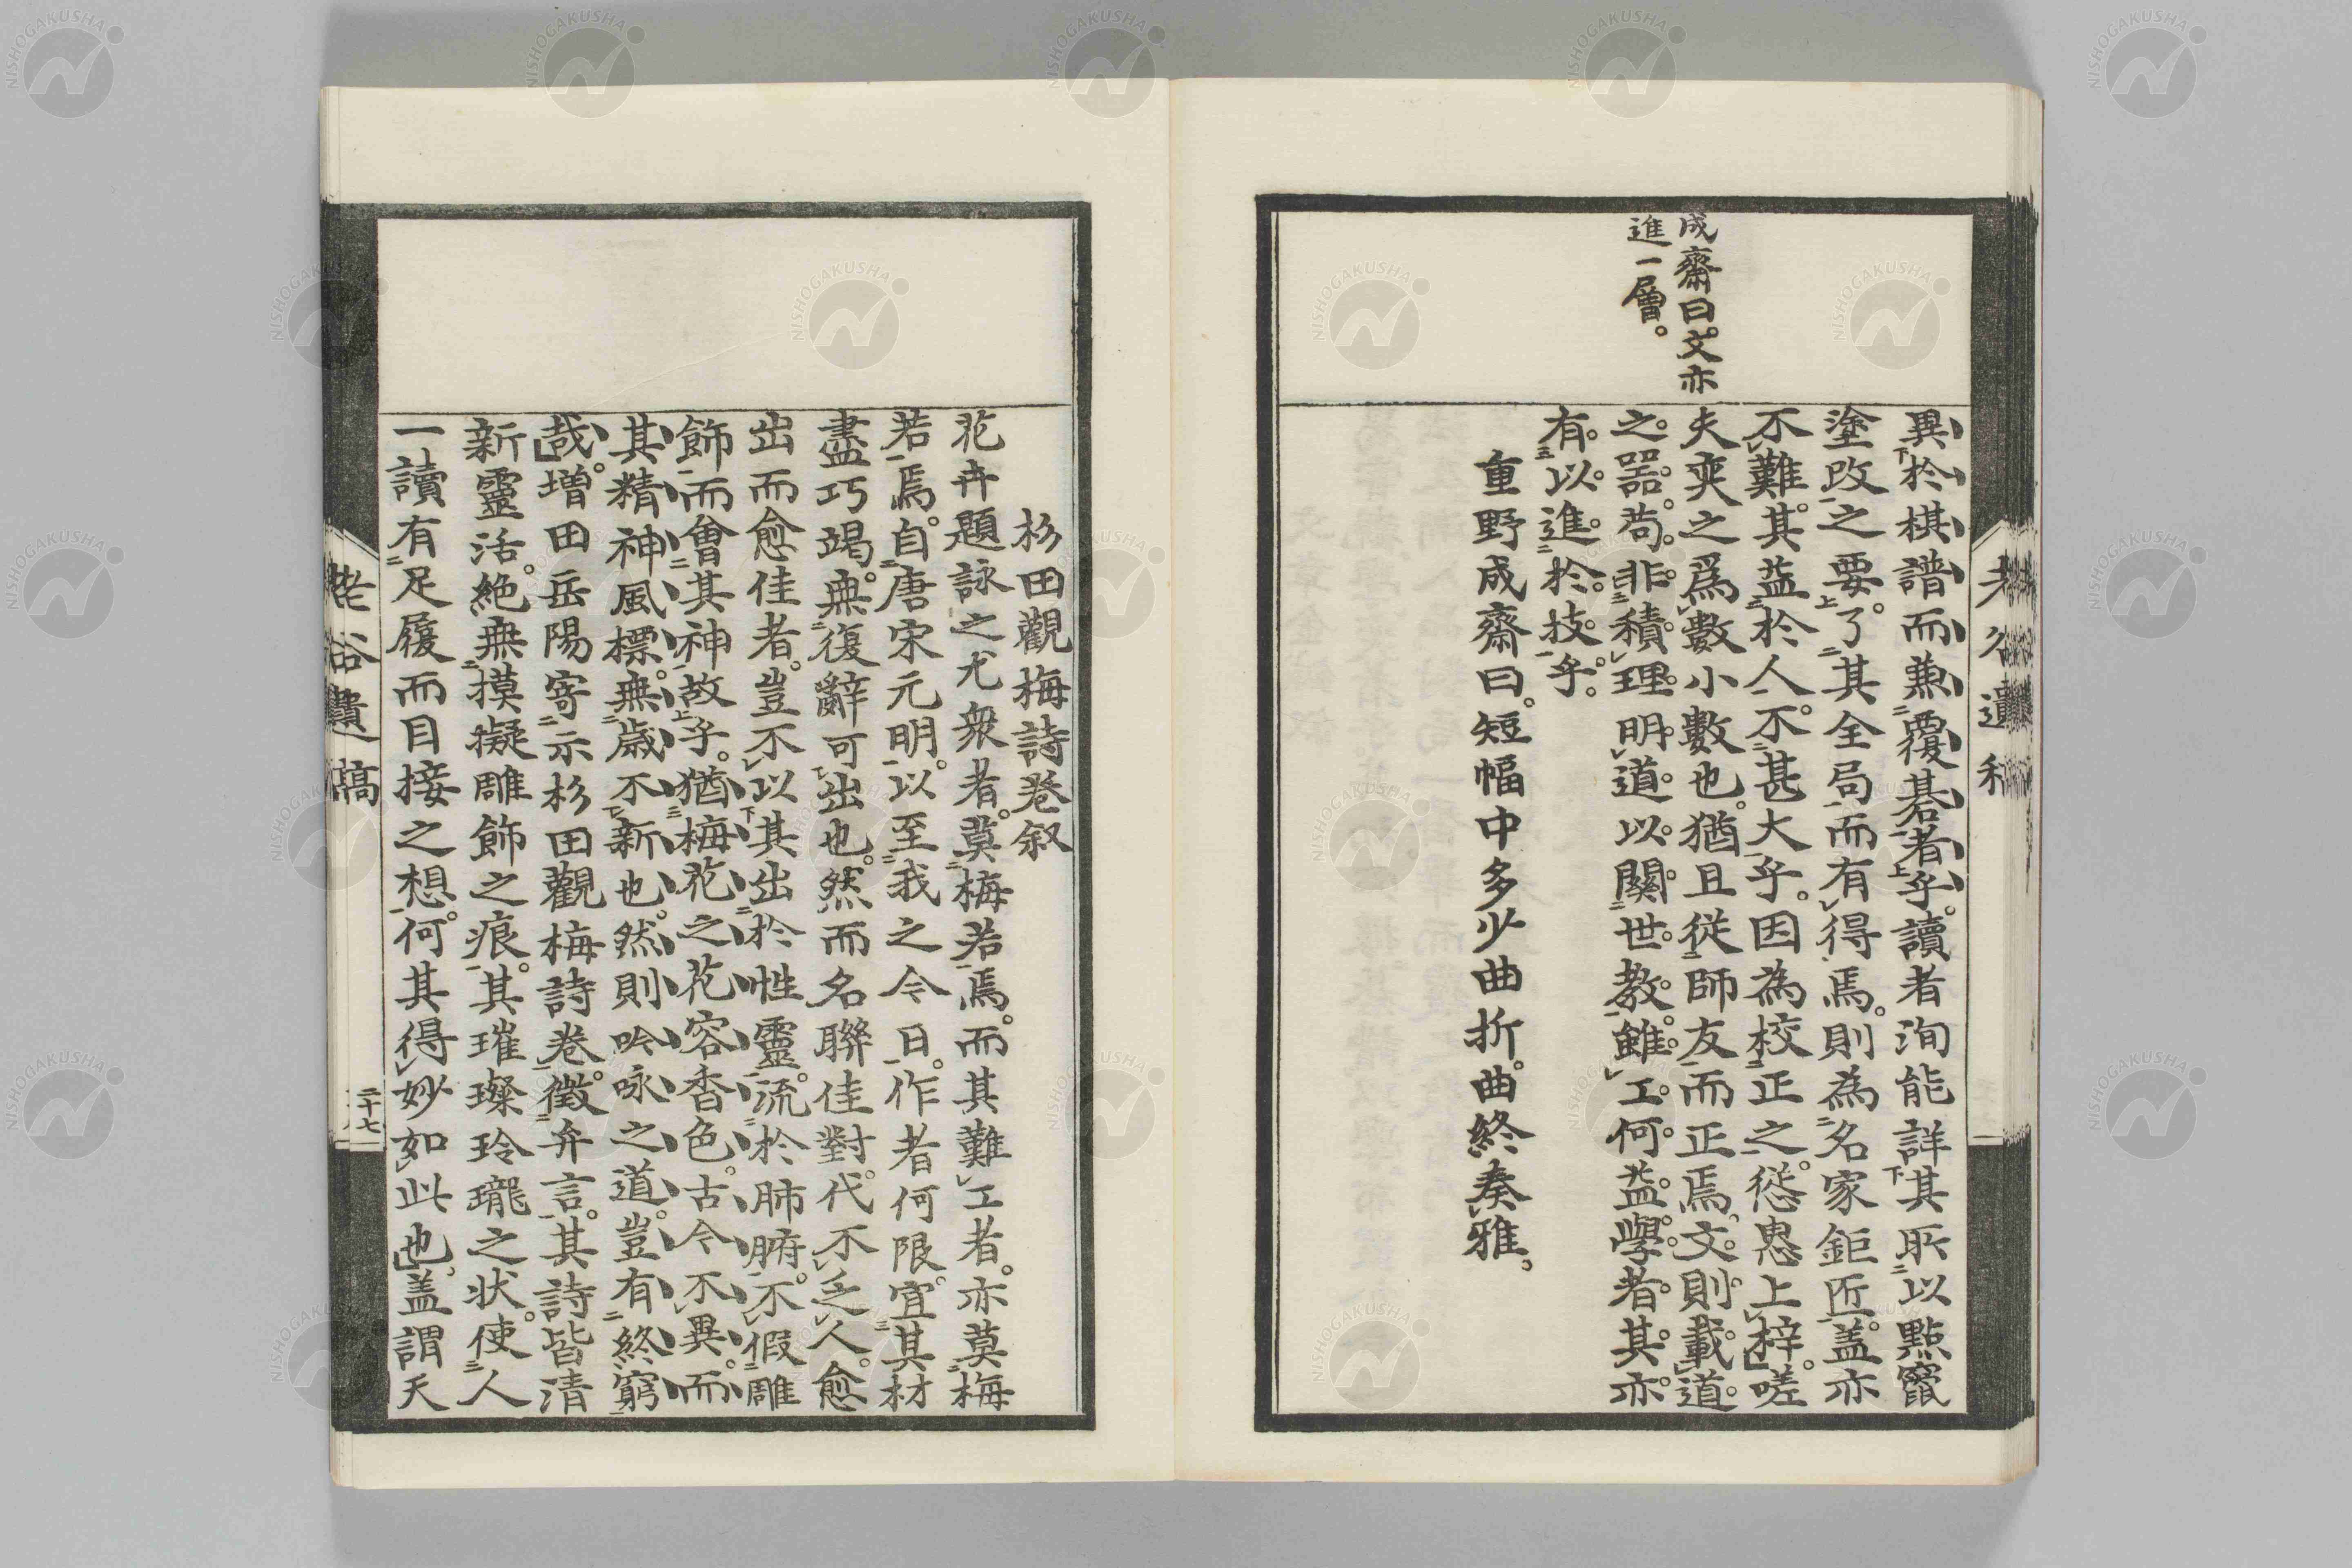 成齋曰。文亦
進一層。
異於棋譜而兼覆碁者乎。讀者洵能詳其所以點竄
塗改之要。了其全局而有得焉。則為名家鉅匠。蓋亦
不難。其益於人。不甚大乎。因為校正之。慫慂上梓。嗟
夫奕之爲數小數也。猶且從師友而正焉。文則載道
之器。苟非積理明道以關世教。雖工何益。學者其亦
有以進於技乎。
重野成齋曰。短幅中多少曲折。曲終奏雅。
杉田觀梅詩卷叙
花卉題詠之尤衆者。莫梅若焉。而其難工者。亦莫梅
若焉。自唐宋元明。以至我之今日。作者何限。宜其材
盡巧竭。無復辭可出也。然而名聯佳對。代不乏人。愈
出而愈佳者。豈不以其出於性靈。流於肺腑。不假雕
飾而會其神故乎。猶梅花之花容香色。古今不異。而
其精神風標。無歳不新也。然則吟咏之道。豈有終窮
哉。増田岳陽寄示杉田觀梅詩卷。徴弁言。其詩皆清
新靈活。絶無摸擬雕飾之痕。其璀璨玲瓏之状。使人
一讀有足履而目接之想。何其得妙如此也。蓋謂天
二十七